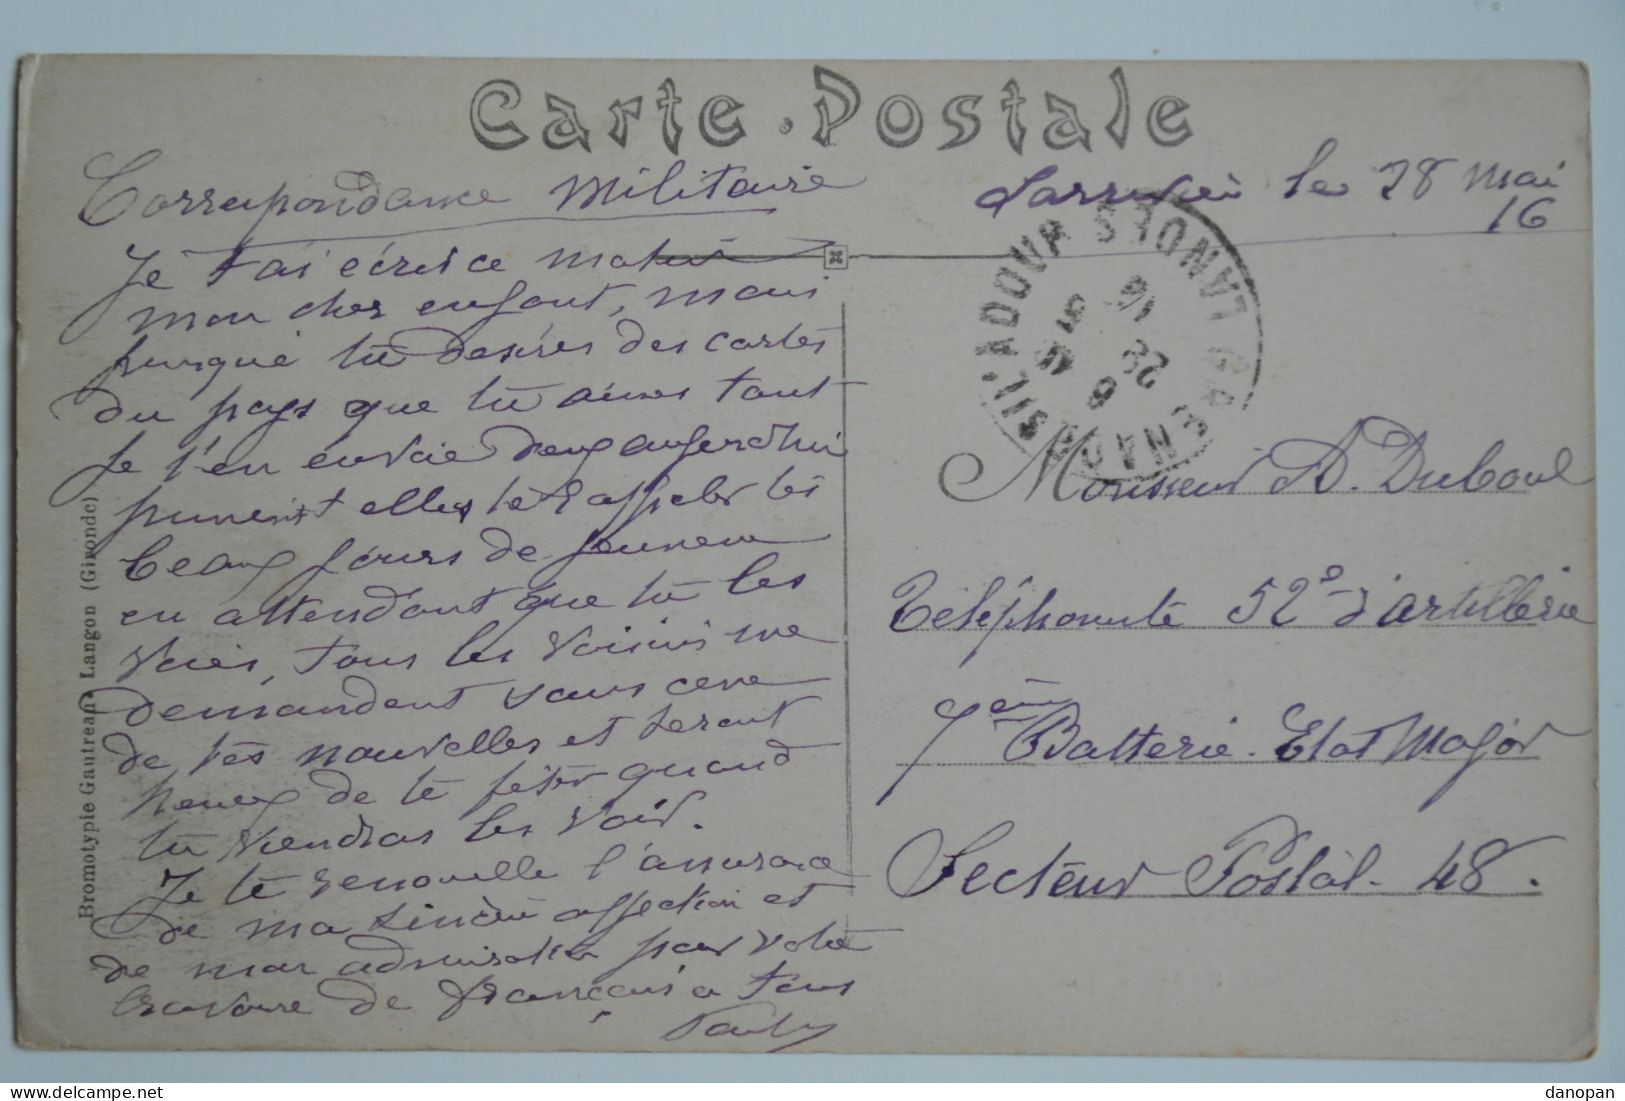 Carte Postale
Correspondance Militaire
le 28 mai
16
Je t'ai écrit ce matin
mon cher enfant, mais
puisque tu desires des cartes
du pays que tu aimes tant
Je t'en envoie deux aujourd'hui
puissent elles te rappeler les
beaux jours de jeunesse
en attendant que tu les
voies, tous les voisins me
demandent sans cesse
de tes nouvelles et seront
heureux de te fêter quand
tu viendras les voir.
Je te renouvelle l'assurance
de ma sincère affection et
de mon admiration pour votre
bravoure de français a tous
Monsieur A. Duboul
Téléphoniste 52e d'artillerie
7ème Batterie. Etat Major
Secteur Postal. 48.
LANDES
28
5
16
Bromotypie Gautreau, Langon (Gironde)
delcampe.net
danopan